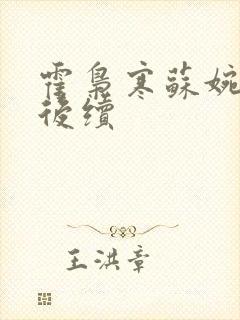 霍梟寒蘇婉
後續
王洪章